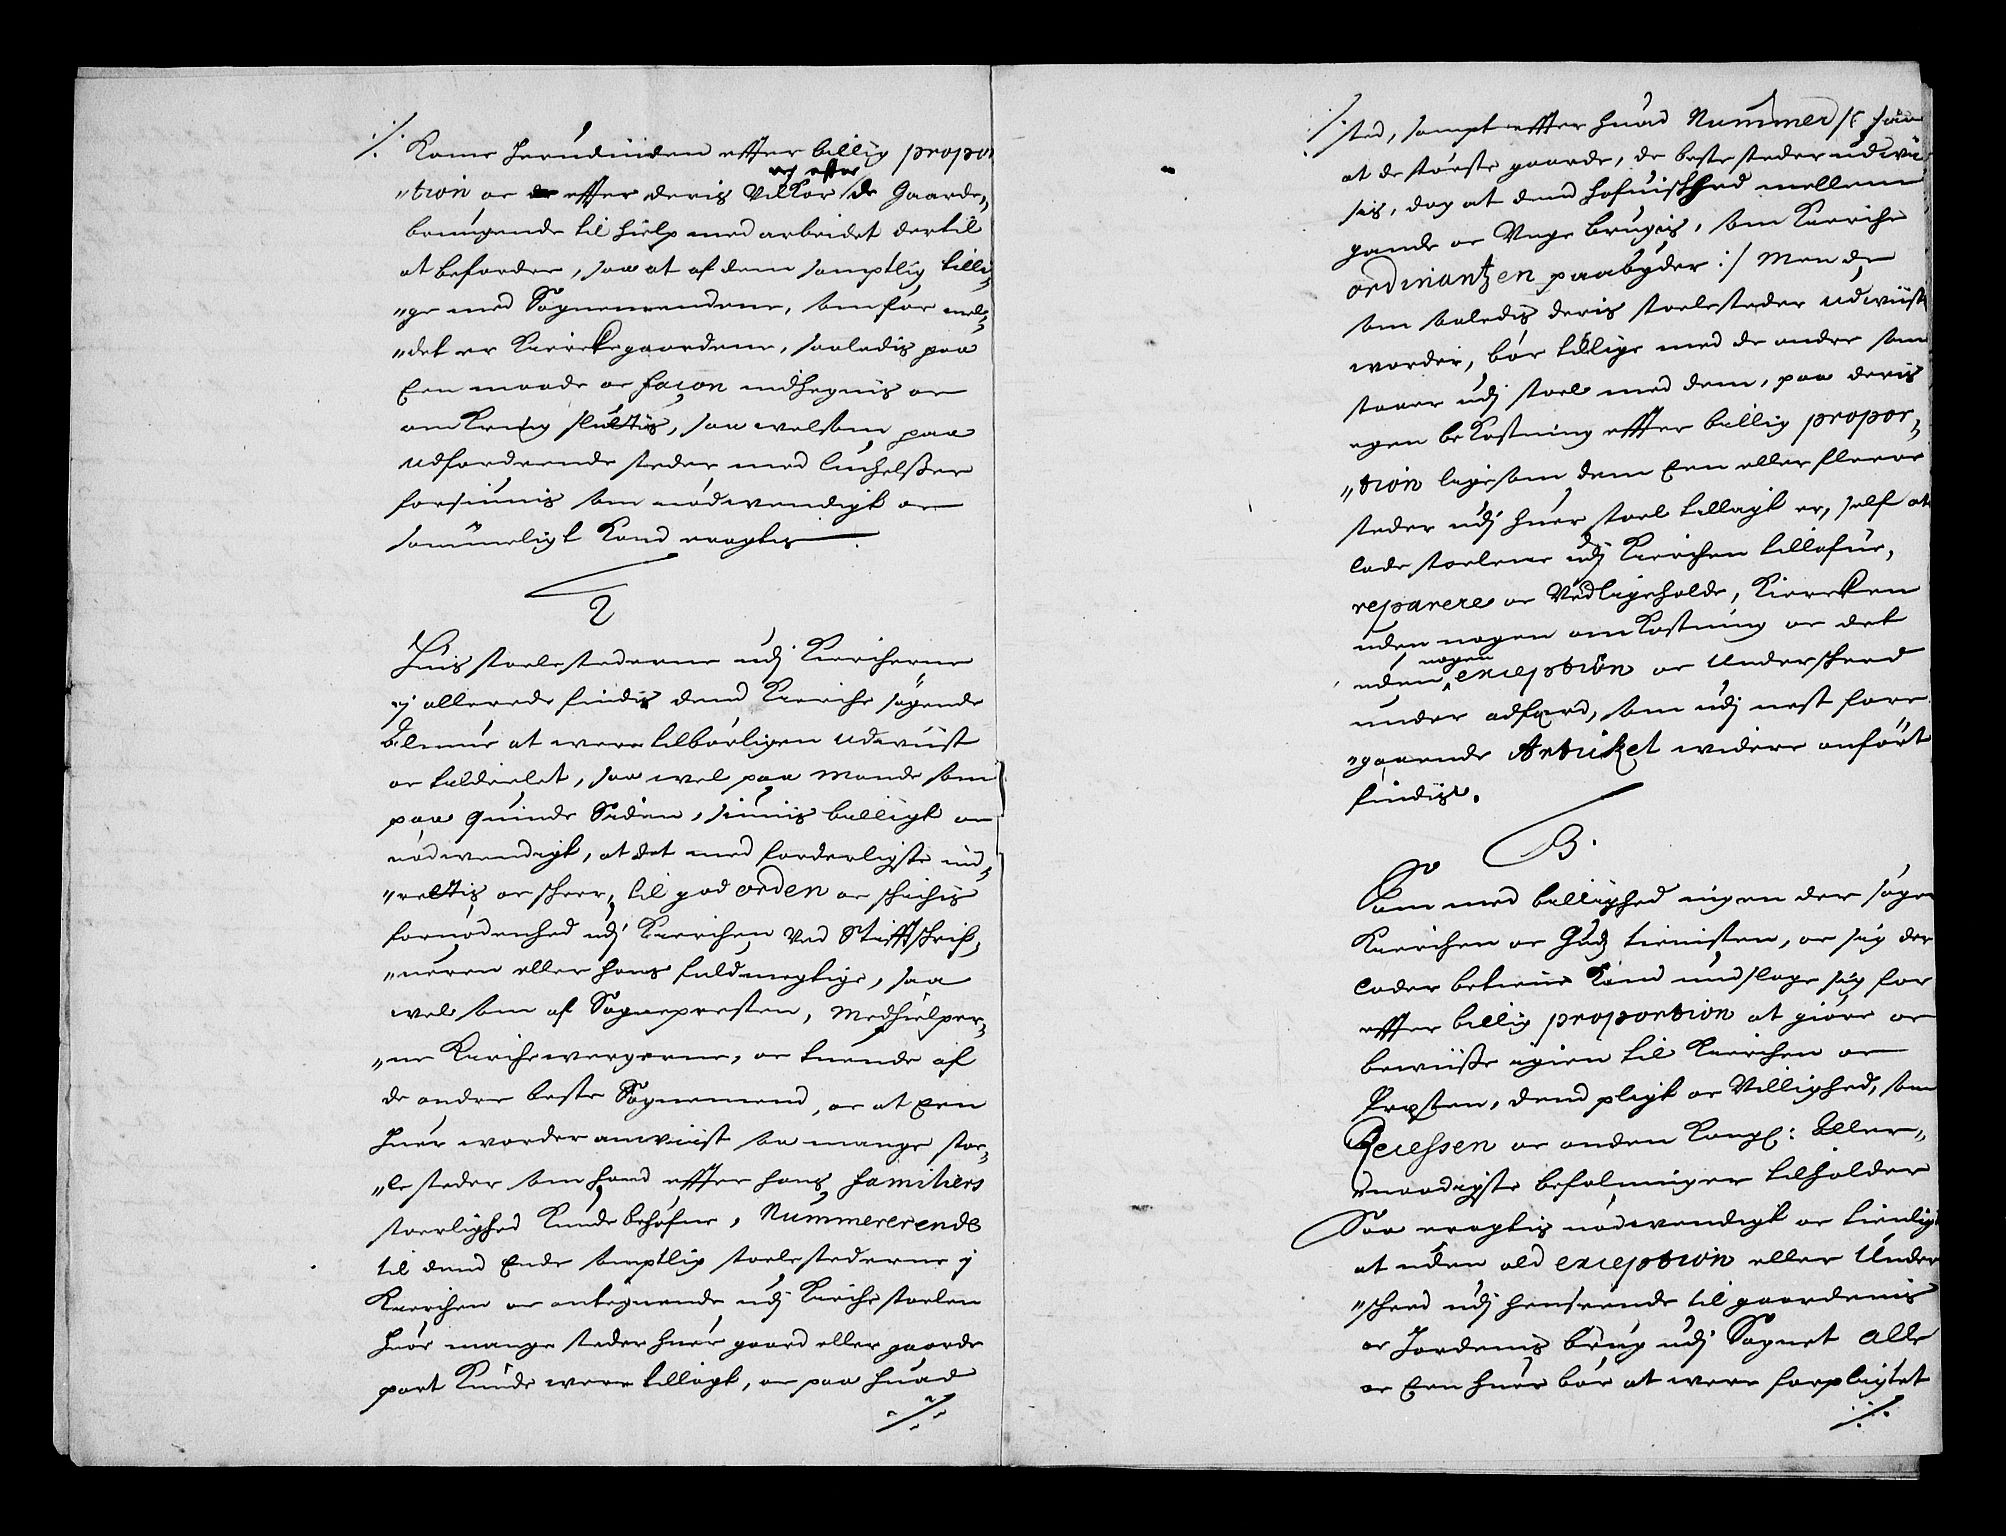 ./. Kome herudinden effter billig propor
"tion oc effter deris Vilkor oc efter de Gaarde,,
beuugende til hielp med arbeidet dertil
at befordre, saa at af dem samptlig tilli,,
"ge med Sognemendene, som før mel,,
"det er Kierckegaardene, saaledis paa
Een maade oc façon indhegnis oc
omkring sluttis, saa welsom paa
udfordrende steder med
forsiunis som nødwendigt oc
sømmeligt Kand eragtis
2
Huis stoelestederne udj Kircherne
ej allerede findis dend Kirche søgende
Almue at were tilbørligen udwiist
oc tildeelet, saa wel paa Mands som
paa Quinde Siden, siunis billigt oc
nødwendigt, at det med forderligste ind,,
"rettis oc skeer, til god orden oc skichis
fornødenhed udj Kirchen, Ved Stifftschrif,,
"ueren eller hans fuldmegtige, saa
wel som af Sognepresten, Medhielper,,
"ne Kirchewergerne, oc tuende af
de andre beste Sognemend, oc at Een
huer worder anwiist saa mange stoe,,
"le steder som hand effter hans familiers
storlighed Kunde behøfue, Nummererende
til dend Ende samptlig stoelestederne j
Kirchen oc antegnende udj Kirche stoelen
huor mange steder huer gaard eller gaards
part Kunde were tillagt, oc paa huad
./.
./. sted, sampt effter huad Nummer /: saa
at de største gaarde, de beste steder udwi
sis, dog at dend høfuischhed mellem
gamle oc Unge brugis, som Kirche
ordinantzen paabyder :/ Men de
som saaledis deris stoelesteder udwiist
worder, bør tillige med de andre som
staaer udj stoel med dem, paa deris
egen bekostning effter billig propor,,
"tion ligesom dem Een eller fleere
steder udj huer stoel tillagt er, self at
lade stoelene udj Kirchen tillafue,
reparere oc Vedligeholde, Kiercken
uden nogen omkostning oc det
uden nogen exception oc Underscheed
under adfærd, som udj nest fore
"gaaende Artickel widere anført
findis.
3.
Som med billighed ingen der søger
Kirchen oc Guds tienisten, oc sig der
lader betiene Kand undslage sig for
effter billig proportion at giøre oc
bewiisse igien til Kirchen oc
Presten, dend pligt oc Villighed, som
Recessen oc anden Kongl: Aller,,
"naadigste befalninger tilholder
Saa eragtis nødwendigt oc tienligt
at uden all exception eller Under
"scheed udj henseende til gaardenis
oc Jordenis brug udj Sognet Alle
oc Een huer bør at were forpligtet
./.